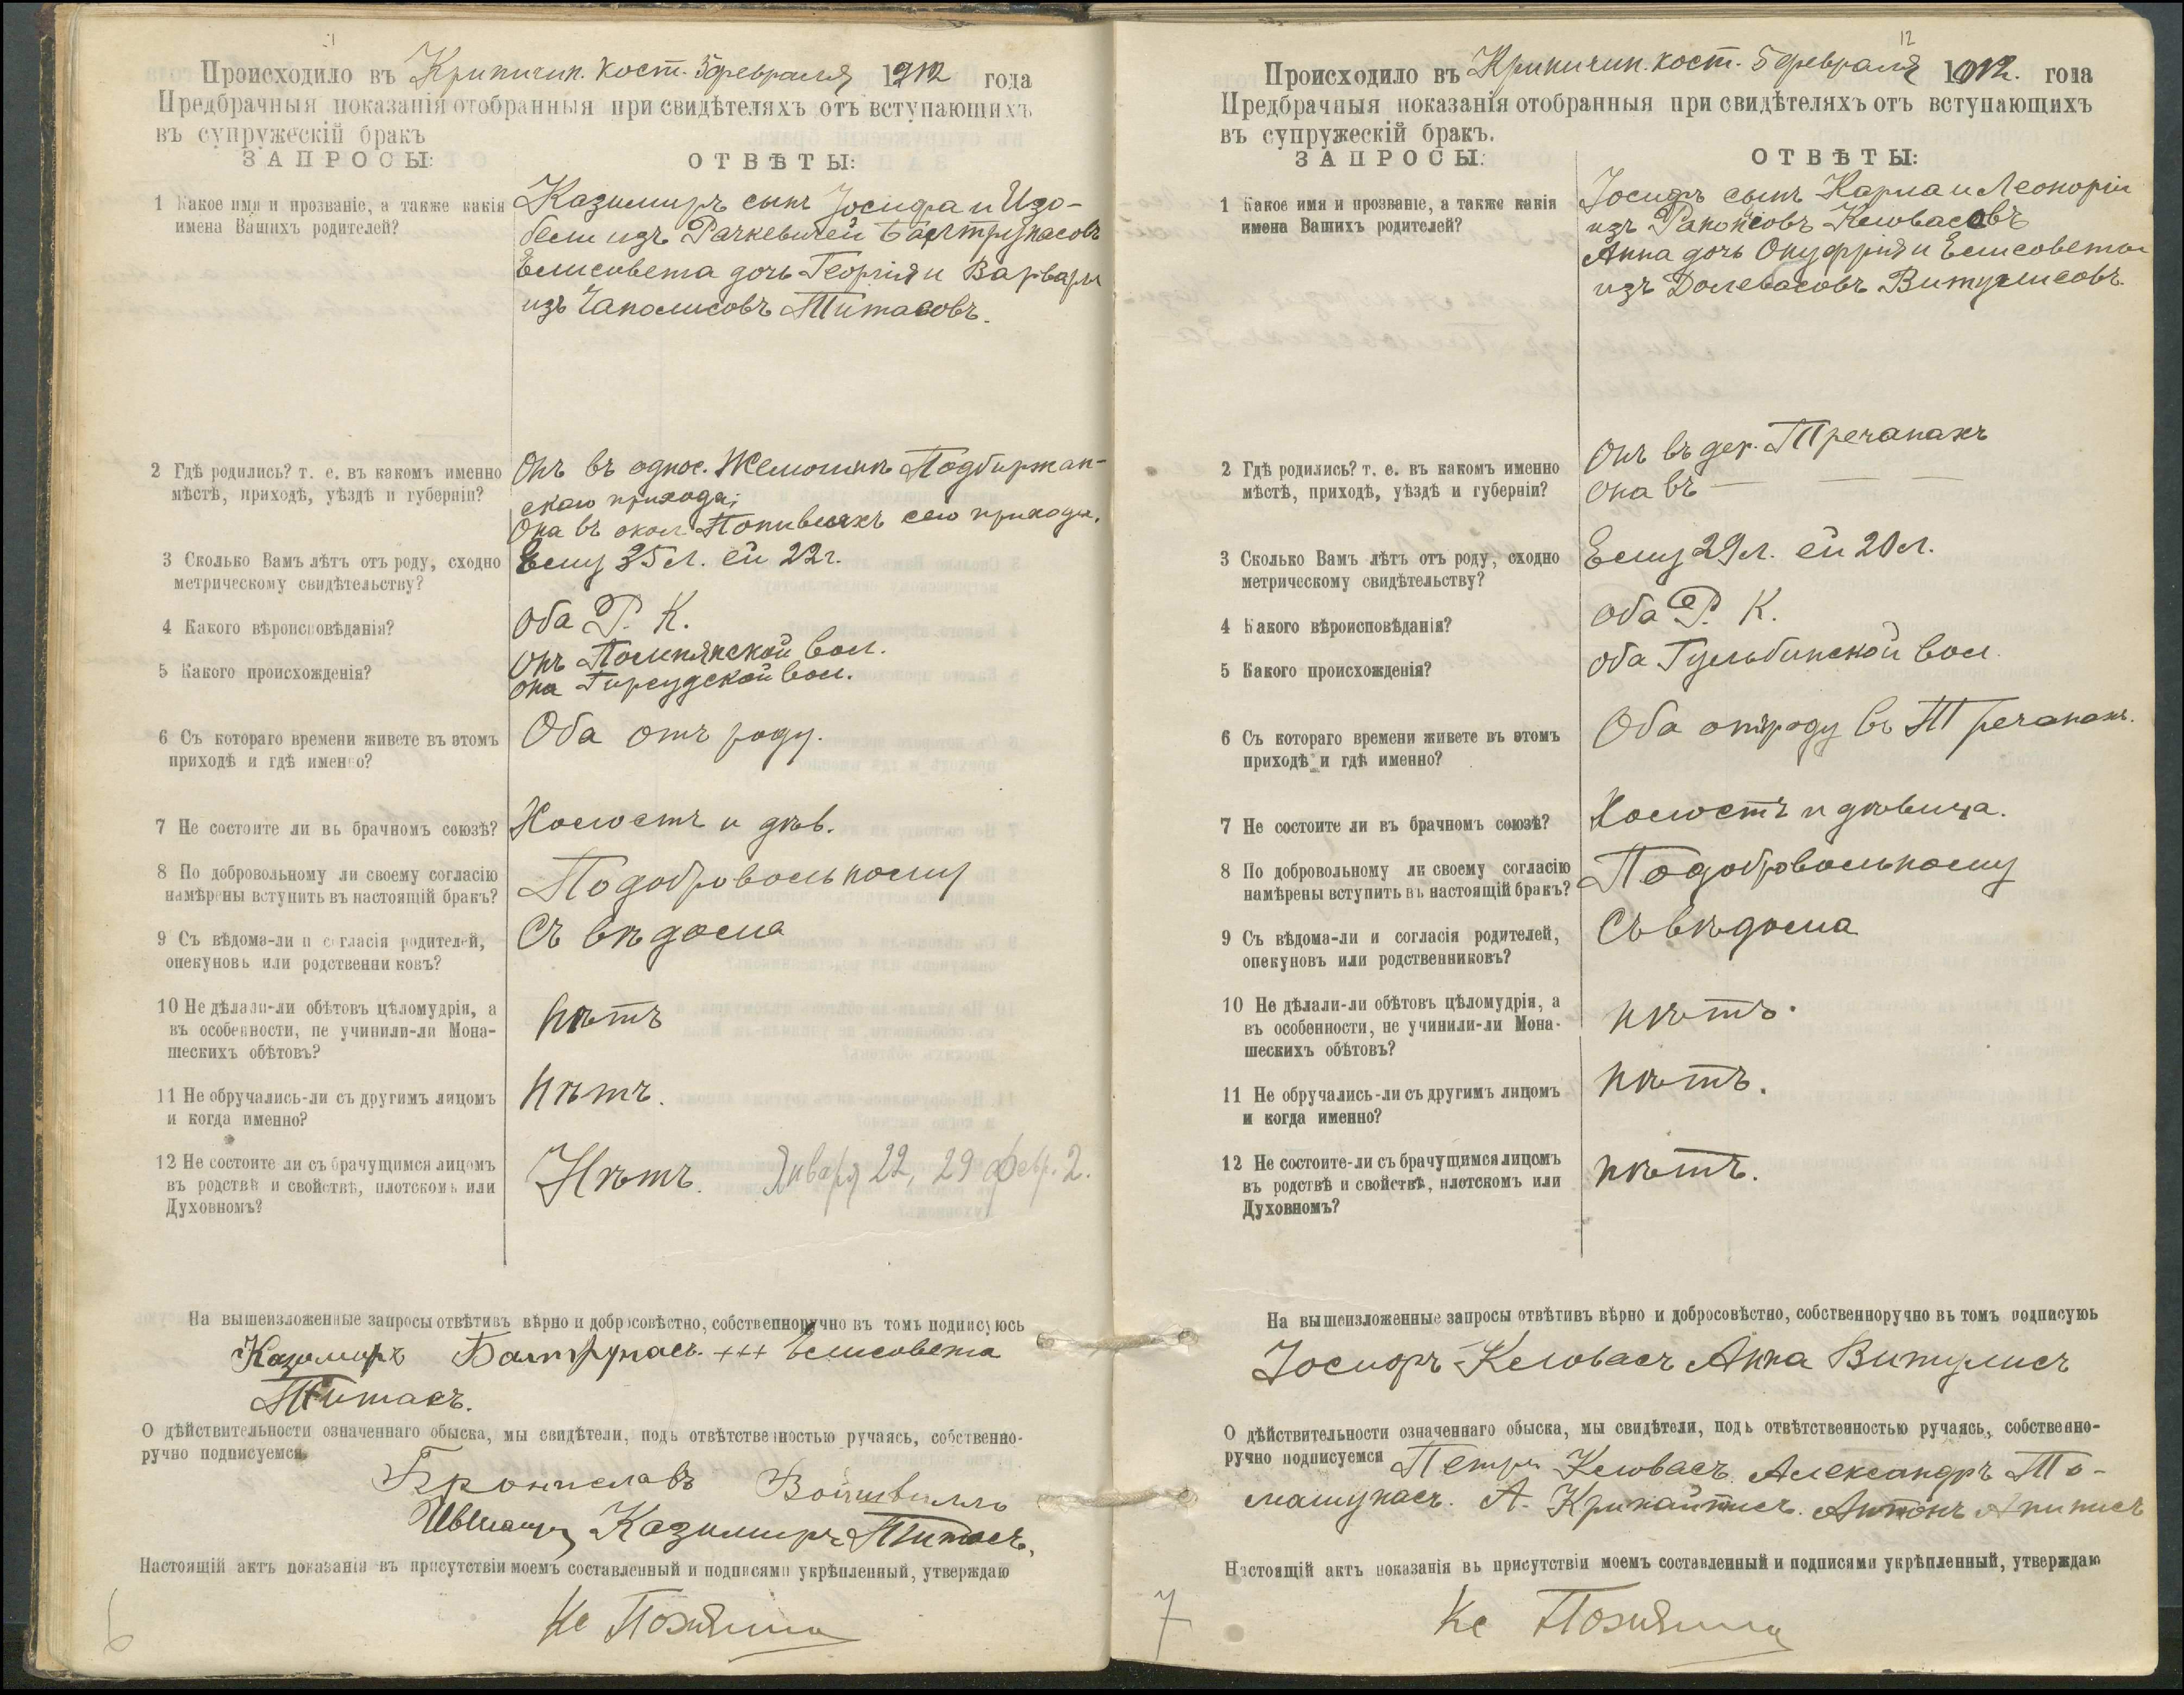 Происходило въ Крипичин. кост. 5 февраля 1912 года
Предбрачныя показанія отобранныя при свидѣтеляхъ отъ вступающихъ
въ супружескій бракъ
ЗАПРОСЫ: ОТВѢТЫ:
1 Какое имя и прозваніе, а также какія
имена Вашихъ родителей?
Казимиръ сынъ Іосифа и Изо-
бели изъ Рачкевичей Балтрунасовъ
Елисовета дочь Георгія и Варвары
изъ Чаполисовъ Титасовъ.
2 Гдѣ родились? т. е. въ какомъ именно
мѣстѣ, приходѣ, уѣздѣ и губерніи?
Онъ въ однос. Подбиржан-
скаго прихода;
Она въ окол. сего прихода.
3 Сколько Вамъ лѣтъ отъ роду, сходно
метрическому свидѣтельству?
Ему 35 л. ей 22 г.
4 Какого вѣроисповѣданія?
Оба Р. К.
5 Какого происхожденія?
Онъ вол.
она Гирсудской вол.
6 Съ котораго времени живете въ этомъ
приходѣ и гдѣ именно?
Оба отъ роду.
7 Не состоите ли въ брачномъ союзѣ?
Холостъ и дѣв.
8 По добровольному ли своему согласію
намѣрены вступить въ настоящій бракъ?
По добровольному
9 Съ вѣдома-ли и согласія родителей,
опекуновъ или родственниковъ?
Съ вѣдома
10 Не дѣлали-ли обѣтовъ цѣломудрія, а
въ особенности, не учинили-ли Мона-
шескихъ обѣтовъ?
нѣтъ
11 Не обручались-ли съ другимъ лицомъ
и когда именно?
нѣтъ.
12 Не состоите ли съ брачущимся лицомъ
въ родствѣ и свойствѣ, плотскомъ или
Духовномъ?
Нѣтъ. Января 22, 29 Февр. 2.
На вышеизложенные запросы отвѣтивъ вѣрно и добросовѣстно, собственноручно въ томъ подписуюсь
Казимиръ Балтрунасъ. +++ Елисовета
Титасъ.
О дѣйствительности означеннаго обыска, мы свидѣтели, подъ отвѣтственностью ручаясь, собственно-
ручно подписуемся
Брониславъ Войшвилло
Казимиръ Титасъ.
Настоящій актъ показанія въ присутствіи моемъ составленный и подписями укрѣпленный, утверждаю
Кс
6
12
Происходило въ Крипичин. кост. 5 февраля 1912. года
Предбрачныя показанія отобранныя при свидѣтеляхъ отъ вступающихъ
въ супружескій бракъ.
ЗАПРОСЫ: ОТВѢТЫ:
1 Какое имя и прозваніе, а также какія
имена Вашихъ родителей?
Іосифъ сынъ Карла и Леоноріи
изъ Клювасовъ
Анна дочь Онуфрія и Елисоветы
изъ Долевасовъ Витулисовъ.
2 Гдѣ родились? т. е. въ какомъ именно
мѣстѣ, приходѣ, уѣздѣ и губерніи?
Онъ въ дер. Тречапахъ
она въ — — —
3 Сколько Вамъ лѣтъ отъ роду, сходно
метрическому свидѣтельству?
Ему 29 л. ей 20 л.
4 Какого вѣроисповѣданія?
оба Р. К.
5 Какого происхожденія?
оба Гульбинской вол.
6 Съ котораго времени живете въ этомъ
приходѣ и гдѣ именно?
Оба отъ роду въ Тречапахъ.
7 Не состоите ли въ брачномъ союзѣ?
Холостъ и дѣвица.
8 По добровольному ли своему согласію
намѣрены вступить въ настоящій бракъ?
По добровольному
9 Съ вѣдома-ли и согласія родителей,
опекуновъ или родственниковъ?
Съ вѣдома
10 Не дѣлали-ли обѣтовъ цѣломудрія, а
въ особенности, не учинили-ли Мона-
шескихъ обѣтовъ?
нѣтъ.
11 Не обручались-ли съ другимъ лицомъ
и когда именно?
нѣтъ.
12 Не состоите-ли съ брачущимся лицомъ
въ родствѣ и свойствѣ, плотскомъ или
Духовномъ?
нѣтъ.
На вышеизложенные запросы отвѣтивъ вѣрно и добросовѣстно, собственноручно въ томъ подписуюь
Іосифъ Клювасъ Анна Витулисъ
О дѣйствительности означеннаго обыска, мы свидѣтели, подъ отвѣтственностью ручаясь, собственно-
ручно подписуемся Петръ Клювасъ. Александръ То-
машунасъ. А. Крикайтисъ. Антонъ
Настоящій актъ показанія въ присутствіи моемъ составленный и подписями укрѣпленный, утверждаю
Кс
7